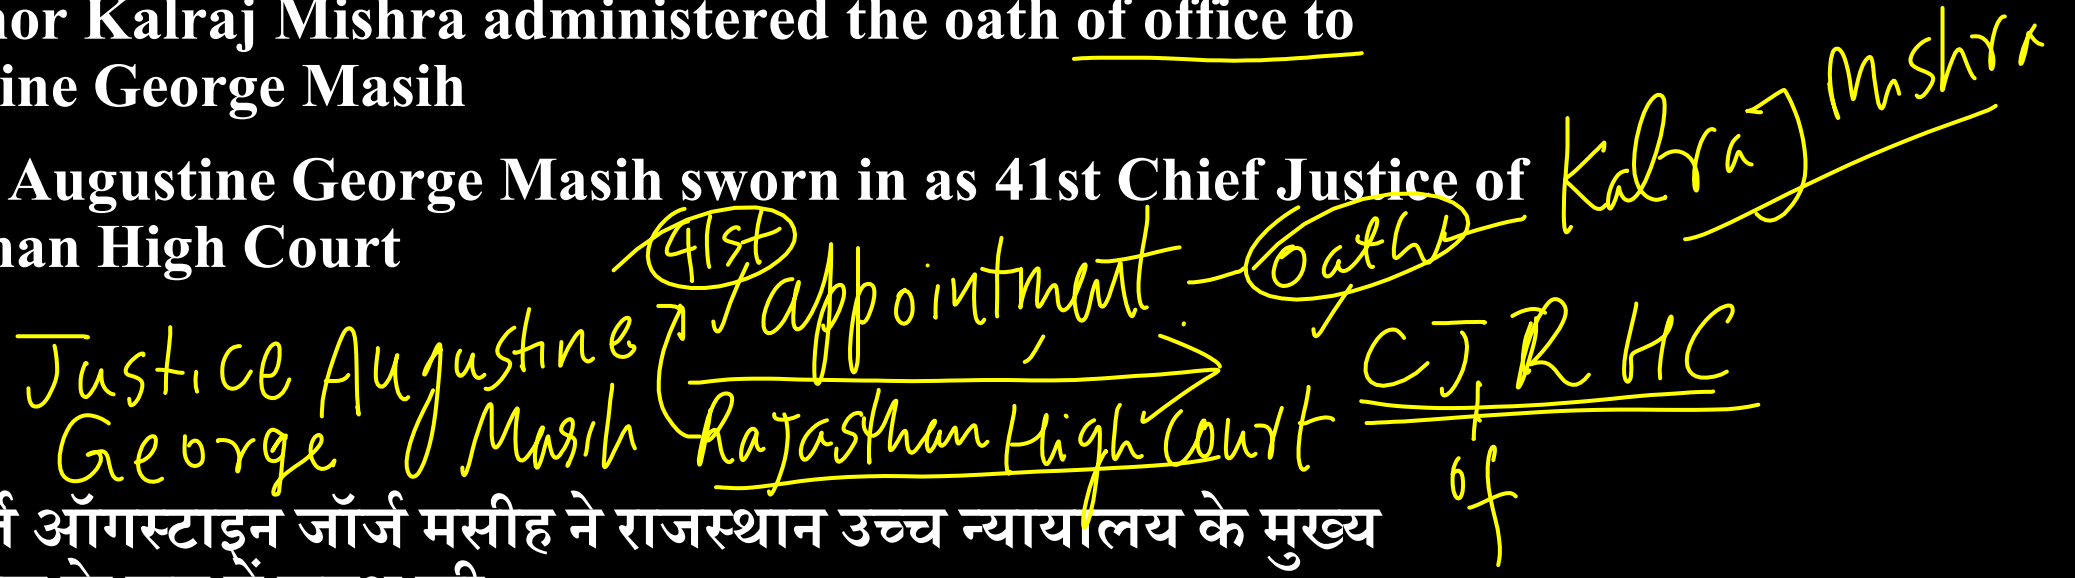 nor Kalraj Mishra administered the oath of office to
ine George Masih
Kalraj Mishra
Augustine George Masih sworn in as 41st Chief Justice of
han High Court
41st appointment - Oath
Justice Augustine
George Masih
Rajasthan High Court
CJ RHC
of
ऑगस्टाइन जॉर्ज मसीह ने राजस्थान उच्च न्यायालय के मुख्य